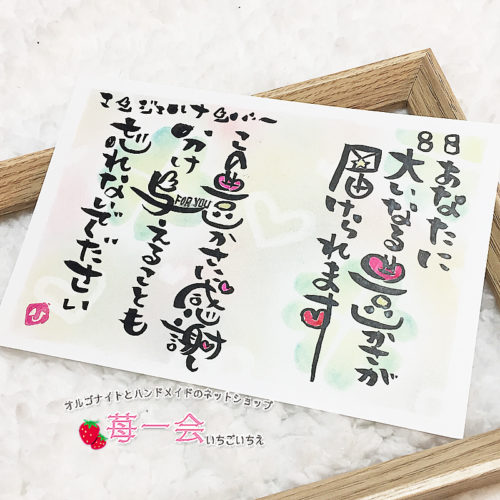 8888
あなたに
大いなる豊かさが
届けられます
エンジェルナンバー
この豊かさに感謝し
分け与えることも
FOR YOU
忘れないでください
オルゴナイトとハンドメイドのネットショップ
苺一会いちごいちえ